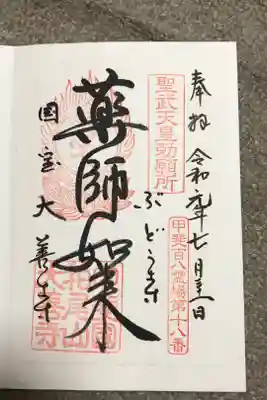 奉拝 令和元年七月三日
聖武天皇勅願所
甲斐百八霊場第十八番
ぶどう寺
薬師如来
国宝大善寺
柏尾山
大善寺